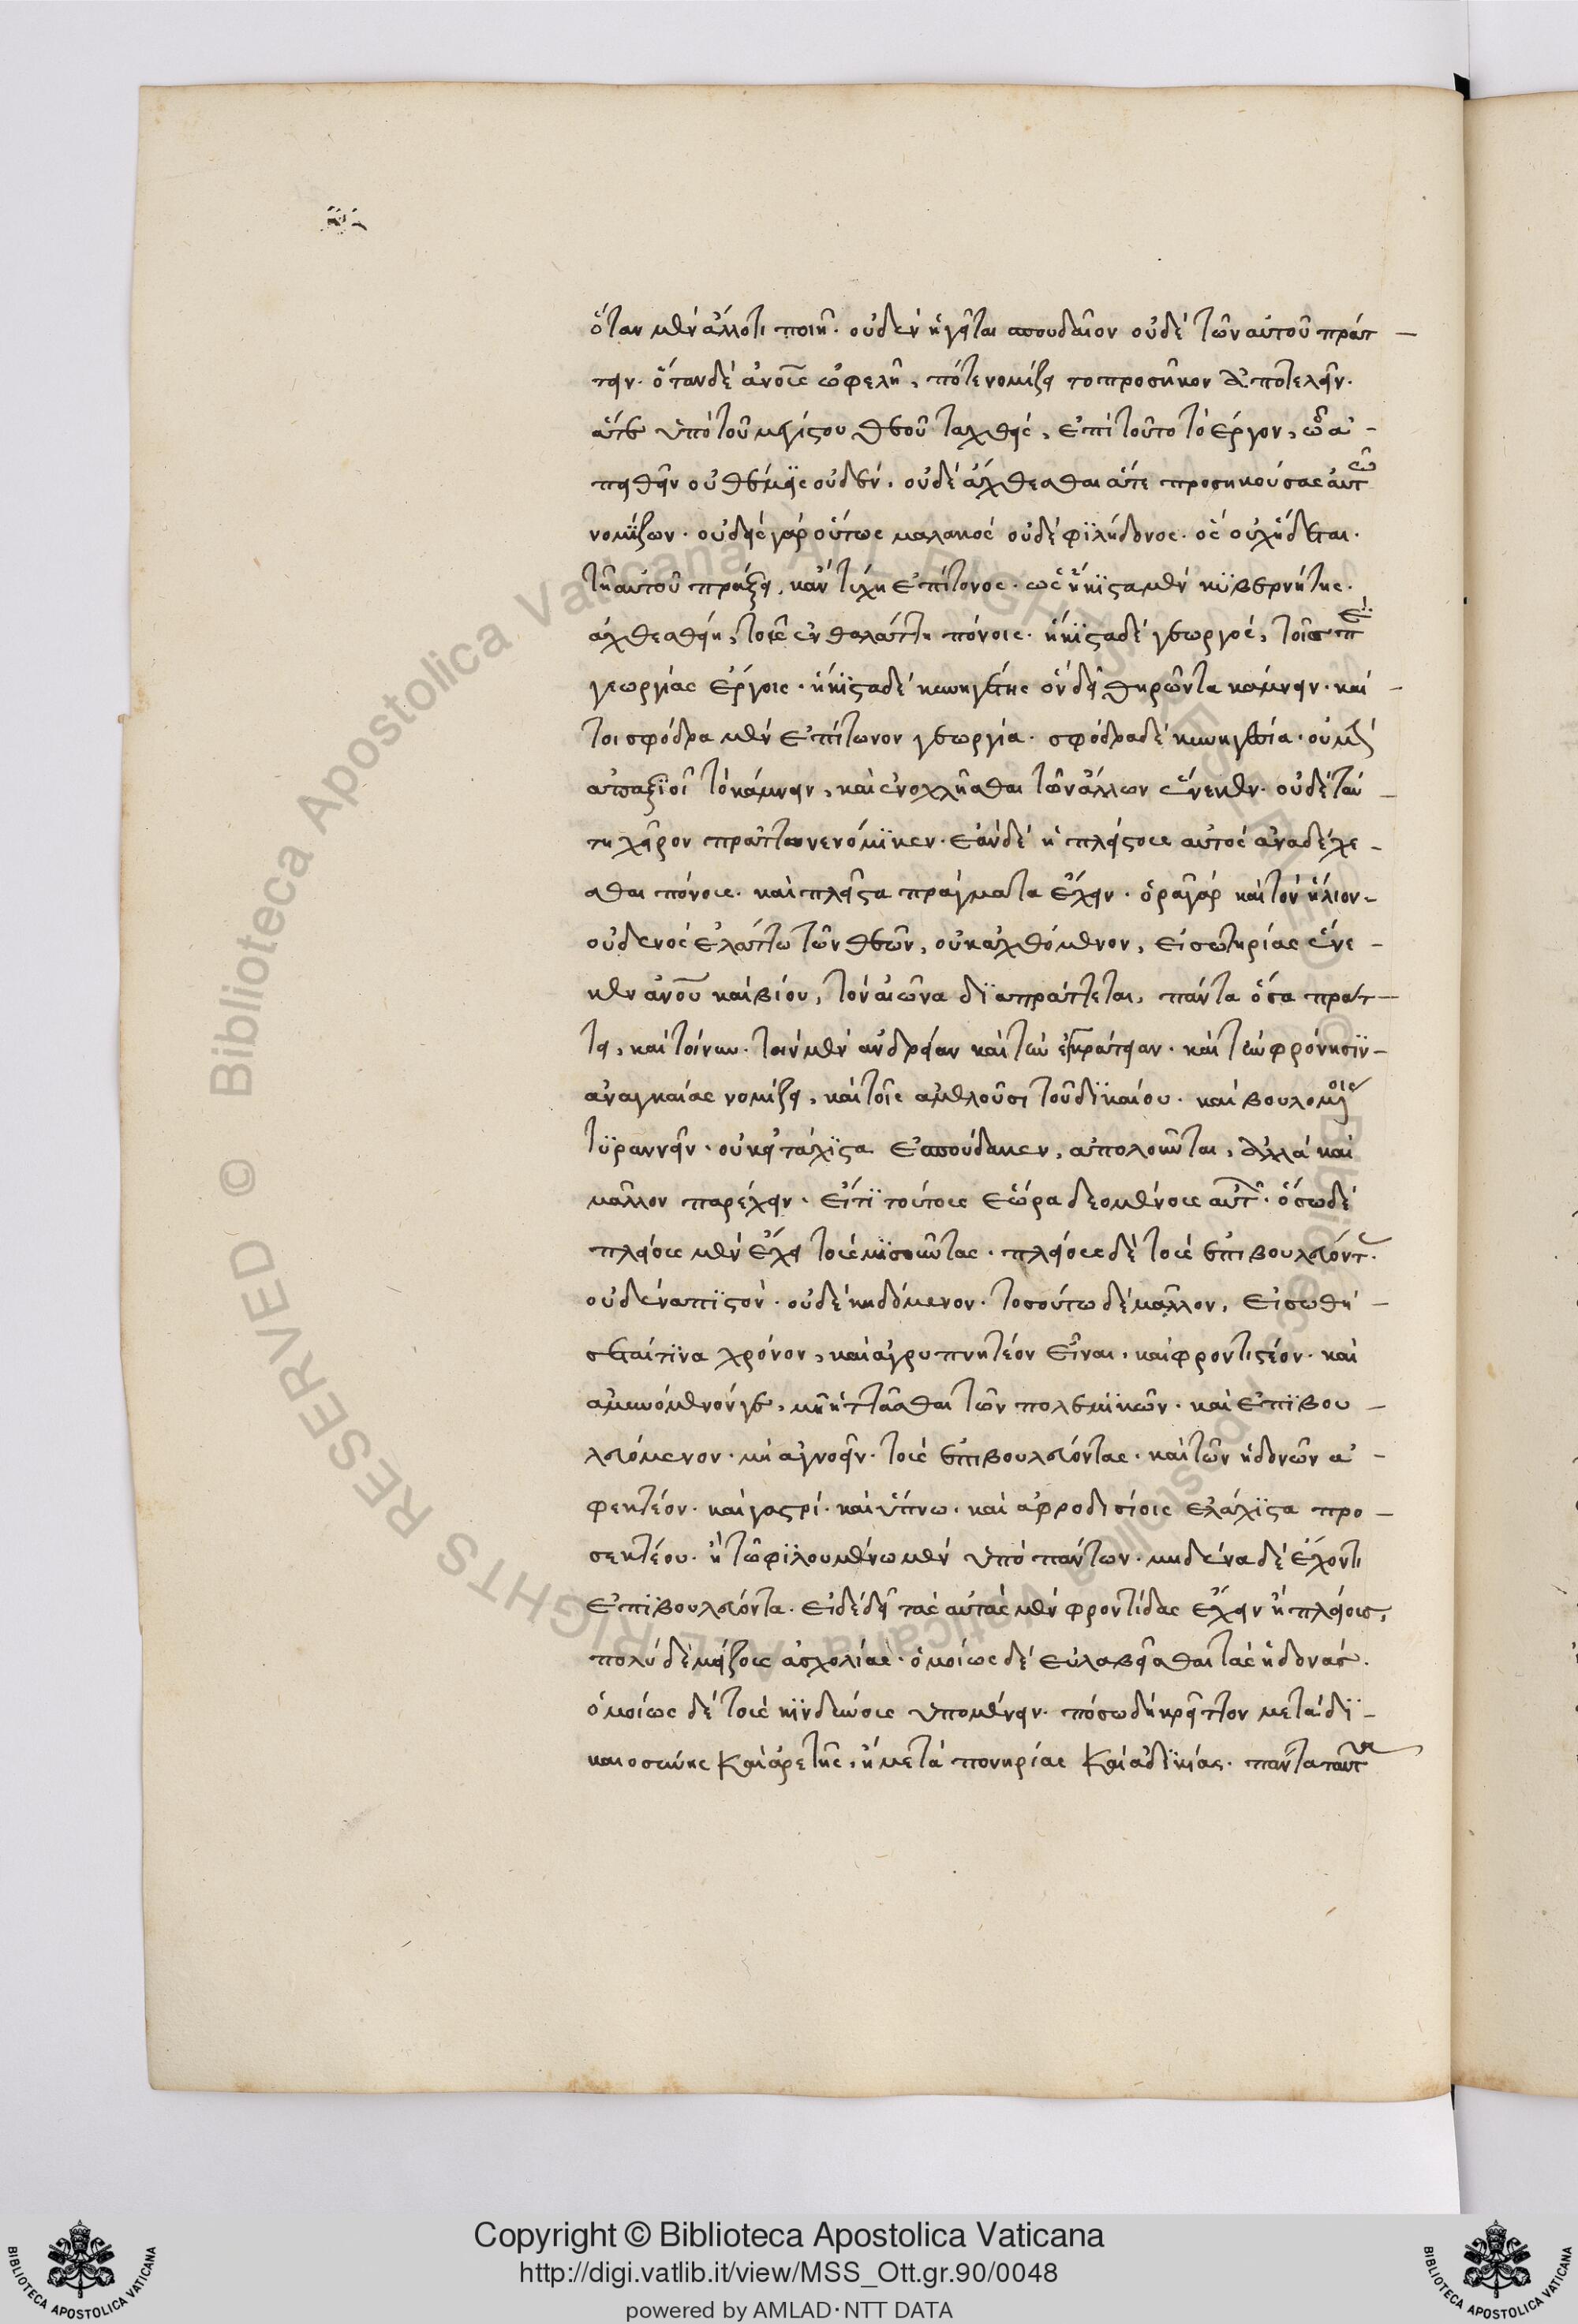 ὅταν μὲν ἄλλό τι ποιῆ· οὐδὲν ἡγεῖται σπουδαῖον οὐδὲ τῶν αὑτοῦ πράτ –
τειν· ὅταν δὲ ἀνοῖς ὠφελῆ, τότε νομίζει το προσῆκον ἀποτελεῖν·
ἅτε ὑπὸ τοῦ μεγίστου θεοῦ ταχθεὶς, ἐπὶ τοῦτο τὸ ἔργον, ὧ ἀ –
πειθεῖν οὐ θέμϊς οὐδὲν, οὐδὲ ἄχθεσθαι ἅτε προσηκούσας αὐτῶ
νομίζων· οὐδεὶς γὰρ οὕτως μαλακὸς οὐδὲ φϊλήδονος· ὃς οὐχ ἥδεται·
τῆ αὑτοῦ πράξει, κἂν τύχη ἐπίπονος· ὡς ἥκϊστα μὲν κϋβερνήτης·
ἀχθεσθείη, τοῖς ἐν θαλάττη πόνοις· ἥκϊστα δὲ γεωργὸς, τοῖς ἐπὶ
γεωργίας ἔργοις· ἥκϊστα δὲ κυνηγέτης ὃν δεῖ θηρῶντα κάμνειν· καί –
τοι σφόδρα μὲν ἐπίπονον γεωργία· σφόδρα δὲ κυνηγεσία· οὐ μὴν
ἀπαξϊοῖ τὸ κάμνειν, καὶ ἐνοχλεῖσθαι τῶν ἄλλων ἕνεκεν· οὐδὲ ταύ –
τη χεῖρον πράττειν νενόμϊκεν· ἐὰν δὲ ἢ πλείστους αὐτὸς ἀναδέχε –
σθαι πόνους· καὶ πλεῖστα πράγματα ἔχειν· ὁρᾶ γὰρ καὶ τὸν ἥλιον –
οὐδενὸς ἐλάττω τῶν θεῶν, οὐκ ἀχθόμενον, εἰ σωτηρίας ἕνε –
κεν ἀνοῦ καὶ βίου, τὸν αἰῶνα δϊαπράττεται, πάντα ὅσα πράτ –
τει, καὶ τοίνυν· τὴν μὲν ἀνδρείαν καὶ τὴν ἐγκράτειαν· καὶ τὴν φρόνησϊν –
ἀναγκαίας νομίζει, καὶ τοῖς ἀμελοῦσι τοῦ δϊκαίου· καὶ βουλομένοις
τϋραννεῖν· οὐκ εἰ τάχϊστα ἐσπούδακεν, ἀπολοῦνται, ἀλλὰ καὶ
μᾶλλον παρέχειν· εἴ τϊ τούτοις ἑώρα δεομένοις αὐτῆ· ὅσω δὲ
πλείους μὲν ἔχει τοὺς μϊσοῦντας· πλείους δὲ τοὺς ἐπϊβουλεύοντας·
οὐδένα πϊστὸν· οὐδὲ κηδόμενον· τοσούτω δὲ μᾶλλον, εἰ σωθή –
σεταί τϊνα χρόνον, καὶ ἀγρυπνητέον εἶναι, καὶ φροντιστέον· καὶ
ἀμυνόμενόν γε, μὴ ἡττᾶσθαι τῶν πολεμϊκῶν· καὶ ἐπϊβου –
λευόμενον· μὴ ἀγνοεῖν· τοὺς ἐπιβουλεύοντας· καὶ τῶν ἡδονῶν ἀ –
φεκτέον· καὶ γαστρὶ· καὶ ὕπνω· καὶ ἀφροδισίοις ἐλάχϊστα προ –
σεκτέου· ἢ τῶ φϊλουμένω μὲν ὑπὸ πάντων· μηδένα δὲ ἔχοντι
ἐπϊβουλεύοντα· εἰ δὲ δεῖ τὰς αὐτὰς μὲν φροντίδας ἔχειν ἢ πλείους,
πολὺ δὲ μείζους ἀσχολίας· ὁμοίως δὲ εὐλαβεῖσθαι τὰς ἡδονάς·
ὁμοίως δὲ τοὺς κϊνδύνους ὑπομένειν· πόσω δὴ κρεῖττον μετὰ δϊ –
καιοσύνης καὶ ἀρετῆς, ἢ μετὰ πονηρίας καὶ ἀδϊκίας· πάντα ταῦτα
Copyright © Biblioteca Apostolica Vaticana
http://digi.vatlib.it/view/MSS_Ott.gr.90/0048
powered by AMLAD·NTT DATA